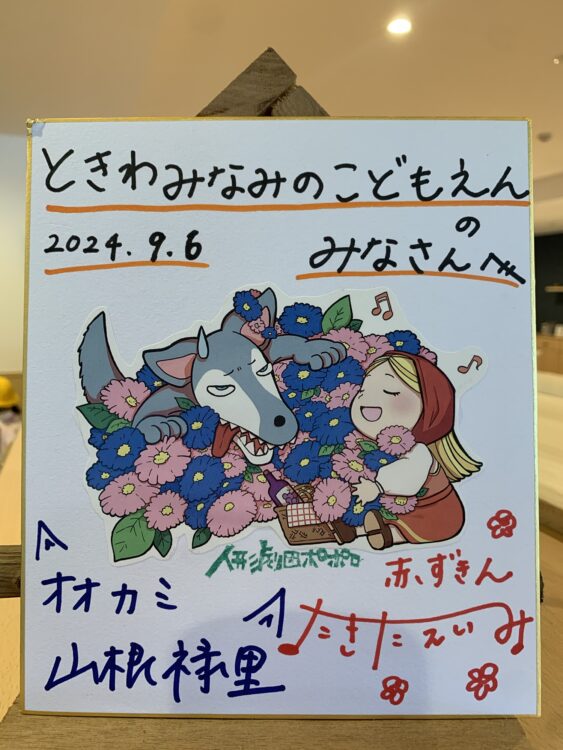 ときわみなみのこどもえん
の
2024.9.6
みなさんへ
人形劇団ポポロ
赤ずきん
オオカミ
たきたえいみ
山根禄里